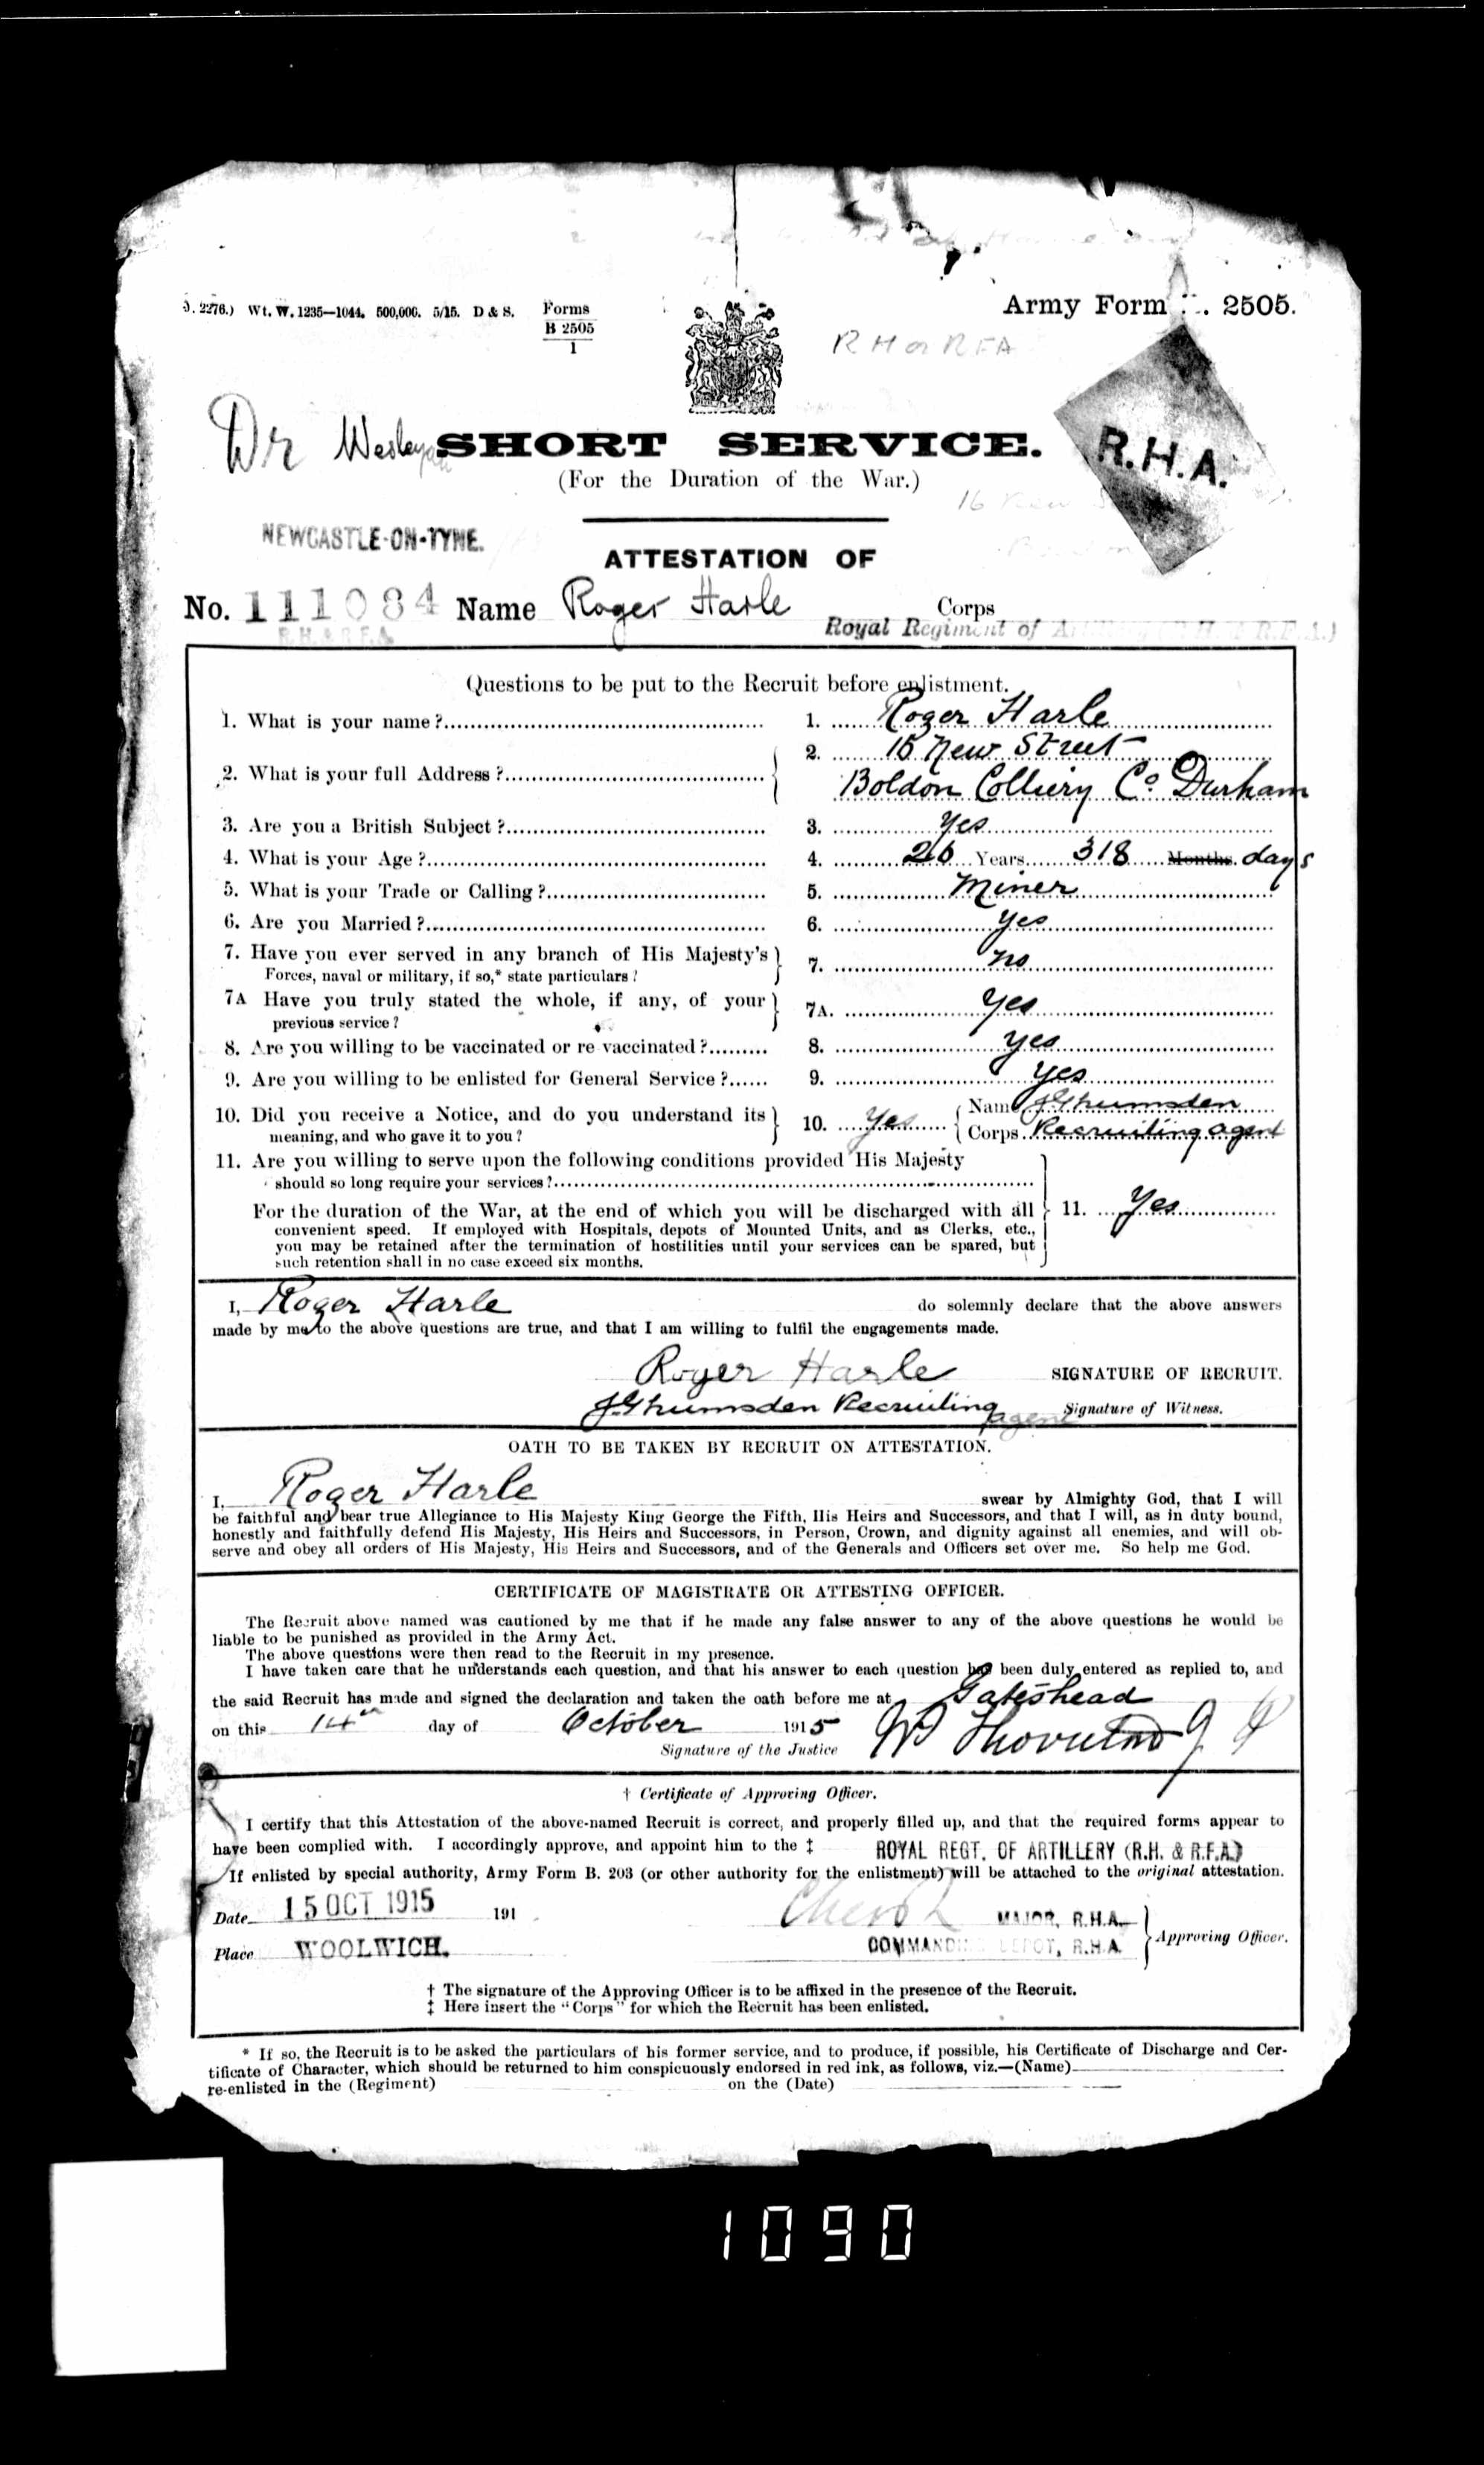 Wt. W. 1235—1044. 500,000. 5/15. D & S. Forms B 2505 1
Army Form 2505.
R H or RFA
Dr Wesleyan
SHORT SERVICE.
R.H.A.
(For the Duration of the War.)
NEWCASTLE-ON-TYNE.
ATTESTATION OF
No. 111084 Name Roger Harle Corps
R.H. & R.F.A. Royal Regiment of Artillery (R.H. & R.F.A.)
Questions to be put to the Recruit before enlistment.
1. What is your name? 1. Roger Harle
2. What is your full Address? 2. 15 New Street
Boldon Colliery Co Durham
3. Are you a British Subject? 3. Yes
4. What is your Age? 4. 26 Years 318 Months days
5. What is your Trade or Calling? 5. Miner
6. Are you Married? 6. Yes
7. Have you ever served in any branch of His Majesty's
Forces, naval or military, if so,* state particulars? 7. No
7A Have you truly stated the whole, if any, of your
previous service? 7A. Yes
8. Are you willing to be vaccinated or re-vaccinated? 8. Yes
9. Are you willing to be enlisted for General Service? 9. Yes
10. Did you receive a Notice, and do you understand its
meaning, and who gave it to you? 10. Yes Name
Corps Recruiting agent
11. Are you willing to serve upon the following conditions provided His Majesty
should so long require your services?
For the duration of the War, at the end of which you will be discharged with all 11. Yes
convenient speed. If employed with Hospitals, depots of Mounted Units, and as Clerks, etc.,
you may be retained after the termination of hostilities until your services can be spared, but
such retention shall in no case exceed six months.
I, Roger Harle do solemnly declare that the above answers
made by me to the above questions are true, and that I am willing to fulfil the engagements made.
Roger Harle SIGNATURE OF RECRUIT.
Recruiting agent Signature of Witness.
OATH TO BE TAKEN BY RECRUIT ON ATTESTATION.
I, Roger Harle swear by Almighty God, that I will
be faithful and bear true Allegiance to His Majesty King George the Fifth, His Heirs and Successors, and that I will, as in duty bound,
honestly and faithfully defend His Majesty, His Heirs and Successors, in Person, Crown, and dignity against all enemies, and will ob-
serve and obey all orders of His Majesty, His Heirs and Successors, and of the Generals and Officers set over me. So help me God.
CERTIFICATE OF MAGISTRATE OR ATTESTING OFFICER.
The Recruit above named was cautioned by me that if he made any false answer to any of the above questions he would be
liable to be punished as provided in the Army Act.
The above questions were then read to the Recruit in my presence.
I have taken care that he understands each question, and that his answer to each question has been duly entered as replied to, and
the said Recruit has made and signed the declaration and taken the oath before me at Gateshead
on this 14th day of October 1915
Signature of the Justice
† Certificate of Approving Officer.
I certify that this Attestation of the above-named Recruit is correct, and properly filled up, and that the required forms appear to
have been complied with. I accordingly approve, and appoint him to the ‡ ROYAL REGT. OF ARTILLERY (R.H. & R.F.A.)
If enlisted by special authority, Army Form B. 203 (or other authority for the enlistment) will be attached to the original attestation.
Date 15 OCT 1915 191 MAJOR, R.H.A.
Place WOOLWICH. COMMANDING DEPOT, R.H.A. Approving Officer.
† The signature of the Approving Officer is to be affixed in the presence of the Recruit.
‡ Here insert the "Corps" for which the Recruit has been enlisted.
* If so, the Recruit is to be asked the particulars of his former service, and to produce, if possible, his Certificate of Discharge and Cer-
tificate of Character, which should be returned to him conspicuously endorsed in red ink, as follows, viz.—(Name)
re-enlisted in the (Regiment) on the (Date)
1090